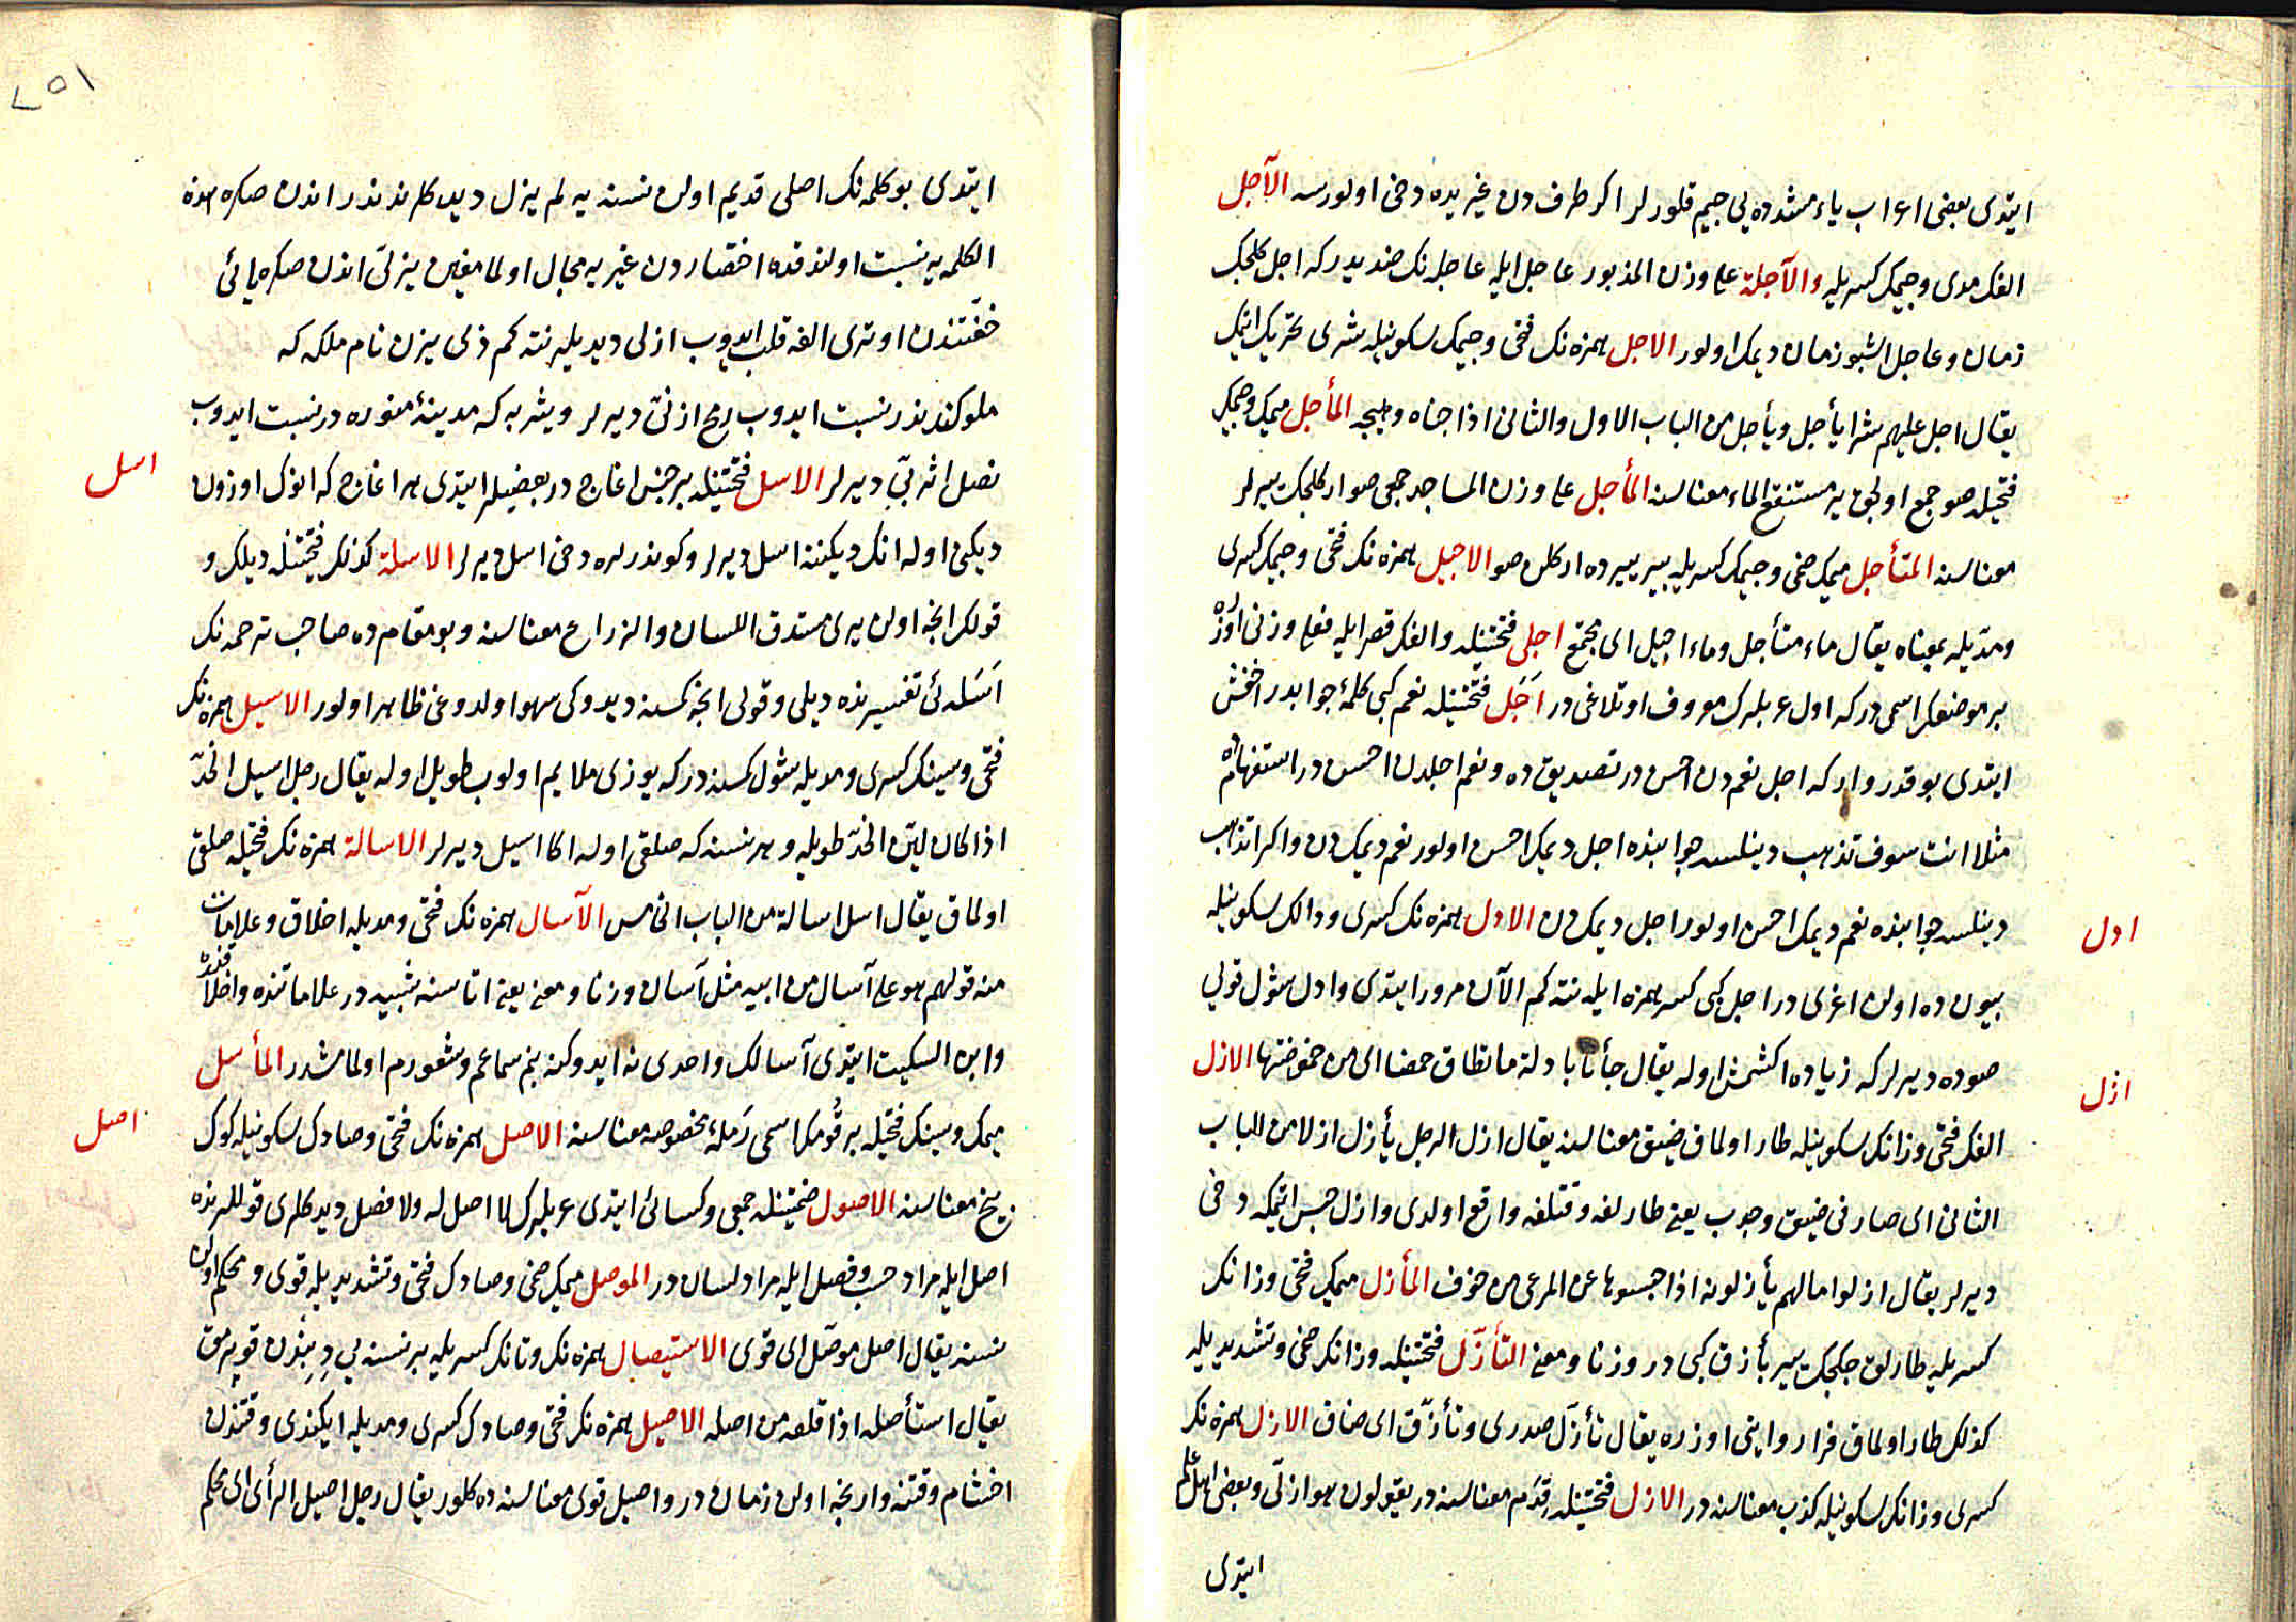 ايتدى بعضى اعراب ياء مشدده يى جيم قلورلر اكر طرف دن غيريده دخى اولورسه الآجل
الفك مدى وجيمك كسريله والآجلة على وزن المذبور عاجل ايله عاجله نك ضديدر كه اجل كلجك
زمان وعاجل اشبو زمان ديمك اولور الاجل همزه نك فتحى وجيمك سكونيله شرى تحريك اتمك
يقال اجل عليهم شرا يأجل ويأجل من الباب الاول والثانى اذا جناه وهيجه المأجل ميمك وجيمك
فتحيله صو جمع اولجق ير مستنقع الماء معناسنه المأجل على وزن المساجد جمعى صوار كلجك ييرلر
معناسنه المتأجل ميمك ضمى وجيمك كسريله بير ييرده اركلن صو الاجيل همزه نك فتحى وجيمك كسرى
ومدّيله بمعناه يقال ماء متأجل وماء اجيل اى مجتمع اجلى فتحتينله والفك قصرايله فعلى وزنى اوزره
بر موضعك اسمى در كه اول عربلرك معروف اوتلاغى در اَجَل فتحتينله نعم كبى كلمۀ جوابدر اخفش
ايتدى بو قدر وار كه اجل نعم دن احسن در تصديق ده ونعم اجلدن احسن در استفهامده
مثلا انت سوف تذهب دينلسه جوابنده اجل ديمك احسن اولور نعم ديمك دن واكر اتذهب
دينلسه جوابنده نعم ديمك احسن اولور اجل ديمك دن الادل همزه نك كسرى ودالك سكونيله
بيون ده اولن اغرى در اجل كبى كسر همزه ايله نته كم الآن مرور ايتدى وادل شول قويى
صوده ديرلر كه زياده اكشمش اوله يقال جأنا بادلة ما تطاق حمضا اى من حموضتها الازل
الفك فتحى وزانك سكونيله طار اولماق ضيق معناسنه يقال ازل الرجل يأزل ازلا من الباب
الثانى اى صار فى ضيق وجدب يعنى طارلغه وقتلغه واقع اولدى وازل حبس اتمكه دخى
ديرلر يقال ازلوا مالهم يأزلونه اذا حبسوها عن المرعى من خوف المأزل ميمك فتحى وزانك
كسريله طارلق جكجك يير مأزق كبى در وزنا ومعنى التأزّل فتحتينله وزانك ضمى وتشديديله
كذلك طار اولماق فرا روايتى اوزره يقال تأزّل صدرى وتأزّق اى ضاق الازل همزه نك
كسرى وزانك سكونيله كذب معناسنه در الازل فتحتينله قِدَم معناسنه در يقولون هو ازلىّ وبعض اهل علم
ايتدى
ادل
ازل
٢٥١
ايتدى بو كلمه نك اصلى قديم اولن نسنه يه لم يزل ديدكلرندندر اندن صكره هذه
الكلمه يه نسبت اولندقده اختصاردن غيريه مجال اولمامغين يزلىّ اندن صكره يائى
خفّتندن اوترى الفه قلب ايدوب ازلى ديديلر نته كم ذى يزن نام ملكه كه
ملوكندندر نسبت ايدوب رمح ازنىّ ديرلر ويثربه كه مدينۀ منوره در نسبت ايدوب
نصل اثربىّ ديرلر الاسل فتحتينله بر جنس اغاج در بعضيلر ايتدى هر اغاج كه انوك اوزون
ديكنى اوله انك ديكننه اسل ديرلر وكوندرلره دخى اسل ديرلر الاسلة كذلك فتحتينله ديلك و
قولك انجه اولن يرى مستدق اللسان والذراع معناسنه وبو مقام ده صاحب ترجمه نك
اَسَله ئى تفسيرنده ديلى وقولى انجه كمسنه ديدوكى سهو اولدوغى ظاهر اولور الاسيل همزه نك
فتحى وسينك كسرى ومديله شول كمسنه در كه يوزى ملايم اولوب طويل اوله يقال رجل اسيل الخدّ
اذا كان ليّن الخدّ طويله وهر نسنه كه صلقى اوله اكا اسيل ديرلر الاسالة همزه نك فتحيله صلقى
اولماق يقال اسل اسالة من الباب الخامس الآسال همزه نك فتحى ومديله اخلاق وعلامات
منه قولهم هو على آسال من ابيه مثل آسان وزنا ومعنى يعنى اتاسنه شبيه در علاماتنده واخلاقنده
وابن السكيت ايتدى آسالك واحدى نه ايدوكنه بنم سماعم وشعورم اولمامشدر المأسل
ميمك وسينك فتحيله بر قومك اسمى رَملۀ مخصوصه معناسنه الاصل همزه نك فتحى وصادك سكونيله كوك
زيخ معناسنه الاصول ضمتينله جمعى وكسائى ايتدى عربلرك لا اصل له ولا فصل ديدكلرى قوللرنده
اصل ايله مراد حسب وفصل ايله مراد لسان در الموصل ميمك ضمى وصادك فتحى وتشديديله قوى ومحكم اولن
نسنه يقال اصل موصّل اى قوى الاستيصال همزه نك وتانك كسريله بر نسنه يى دِبِندن قوپرمق
يقال استأصله اذا قلعه من اصله الاصيل همزه نك فتحى وصادك كسرى ومديله ايكندى وقتندن
اخشام وقتنه وارنجه اولن زمان در واصيل قوى معناسنه ده كلور يقال رجل اصيل الرأى اى محكم
اسل
اصل